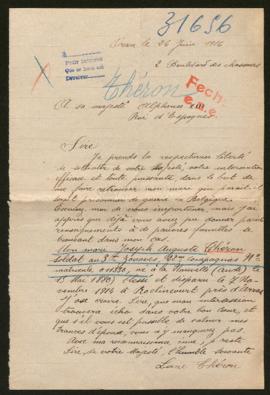 31656
Oran le 26 Juin 1916
2 Boulevard des Chasseurs
Théron
Fech.
A sa majesté Alphonse XIII
Roi d'Espagne
Sire
Je prends la respectueuse liberté
de solliciter de votre Majesté, votre intervention
efficace et toute puissante dans le but de
me faire retrouver mon mari que parait-il
serait prisonnier de guerre en Belgique.
de vous importuner, mais j'ai
appris que déjà vous avez pu donner pareils
renseignements à de pauvres familles se
trouvant dans mon cas.
Mon mari Joseph Auguste Théron
soldat au 3me Zouaves, 22me compagnie
matricule 01890, né à la Nouvelle (Aude) le
15 Mai 1880, blessé et disparu le 7 No-
vembre 1914 à Roclincourt près d'Arras
J'ose croire, Sire, que mon intercession
trouvera écho dans votre bon cœur, et
que s'il vous est possible de calmer mes
transes d'épouse, vous n'y manquerez pas.
Avec ma reconnaissance
Sire, de votre Majesté, l'humble servante
Théron